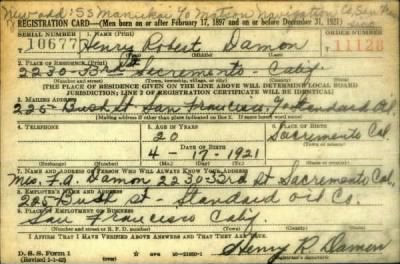 New add: SS Manukai % Matson Navigation Co San Francisco
REGISTRATION CARD—(Men born on or after February 17, 1897 and on or before December 31, 1921)
SERIAL NUMBER 1. NAME (Print) ORDER NUMBER
10677 Henry Robert Damon 11128
2. PLACE OF RESIDENCE (Print)
2230-33rd St Sacramento - Calif
[THE PLACE OF RESIDENCE GIVEN ON THE LINE ABOVE WILL DETERMINE LOCAL BOARD
JURISDICTION; LINE 2 OF REGISTRATION CERTIFICATE WILL BE IDENTICAL]
3. MAILING ADDRESS
225-Bush St San Francisco % Standard Oil
[Mailing address if other than place indicated on line 2. If same insert word same]
4. TELEPHONE 5. AGE IN YEARS 6. PLACE OF BIRTH
20 Sacramento
DATE OF BIRTH
4-17-1921 Cal.
(Exchange) (Number) (Mo.) (Day) (Yr.) (State or country)
7. NAME AND ADDRESS OF PERSON WHO WILL ALWAYS KNOW YOUR ADDRESS
Mrs. F.A. Damon 2230-33rd St Sacramento Cal.
8. EMPLOYER'S NAME AND ADDRESS
225 Bush St - Standard Oil Co.
9. PLACE OF EMPLOYMENT OR BUSINESS
San Francisco Calif.
(Number and street or R. F. D. number) (Town) (County) (State)
I AFFIRM THAT I HAVE VERIFIED ABOVE ANSWERS AND THAT THEY ARE TRUE.
D. S. S. Form 1
(Revised 1-1-42) Henry R. Damon